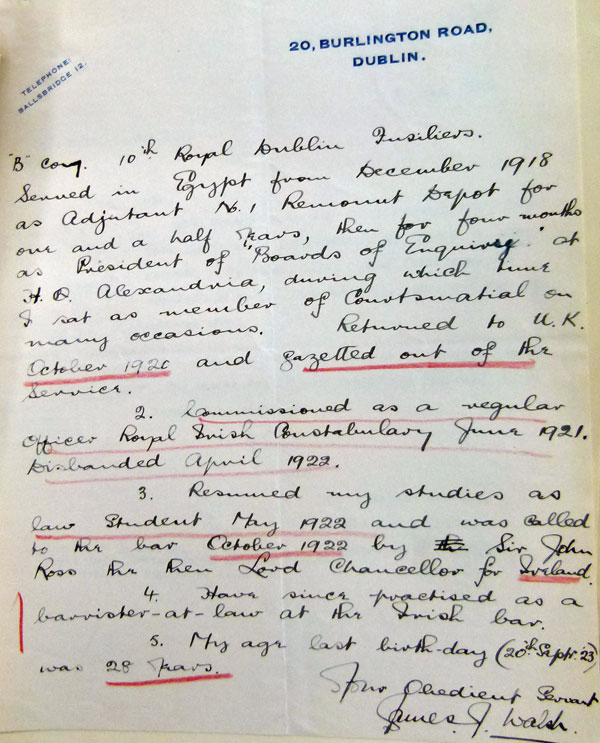 TELEPHONE:
BALLSBRIDGE 12.
20, BURLINGTON ROAD,
DUBLIN.
"B" Coy. 10th Royal Dublin Fusiliers.
Served in Egypt from December 1918
as Adjutant No. 1 Remount Depot for
one and a half years, then for four months
as President of "Boards of Enquiry" at
H.Q. Alexandria, during which time
I sat as member of Courtsmatial on
many occasions. Returned to U.K.
October 1920 and gazetted out of the
Service.
2. Commissioned as a regular
Officer Royal Irish Constabulary June 1921.
Disbanded April 1922.
3. Resumed my studies as
law Student May 1922 and was called
to the bar October 1922 by Sir John
Ross the then Lord Chancellor for Ireland.
4. Have since practised as a
barrister-at-law at the Irish bar.
5. My age last birth-day (20th Septr. '23)
was 28 years.
Your Obedient Servant
James. J. Walsh.